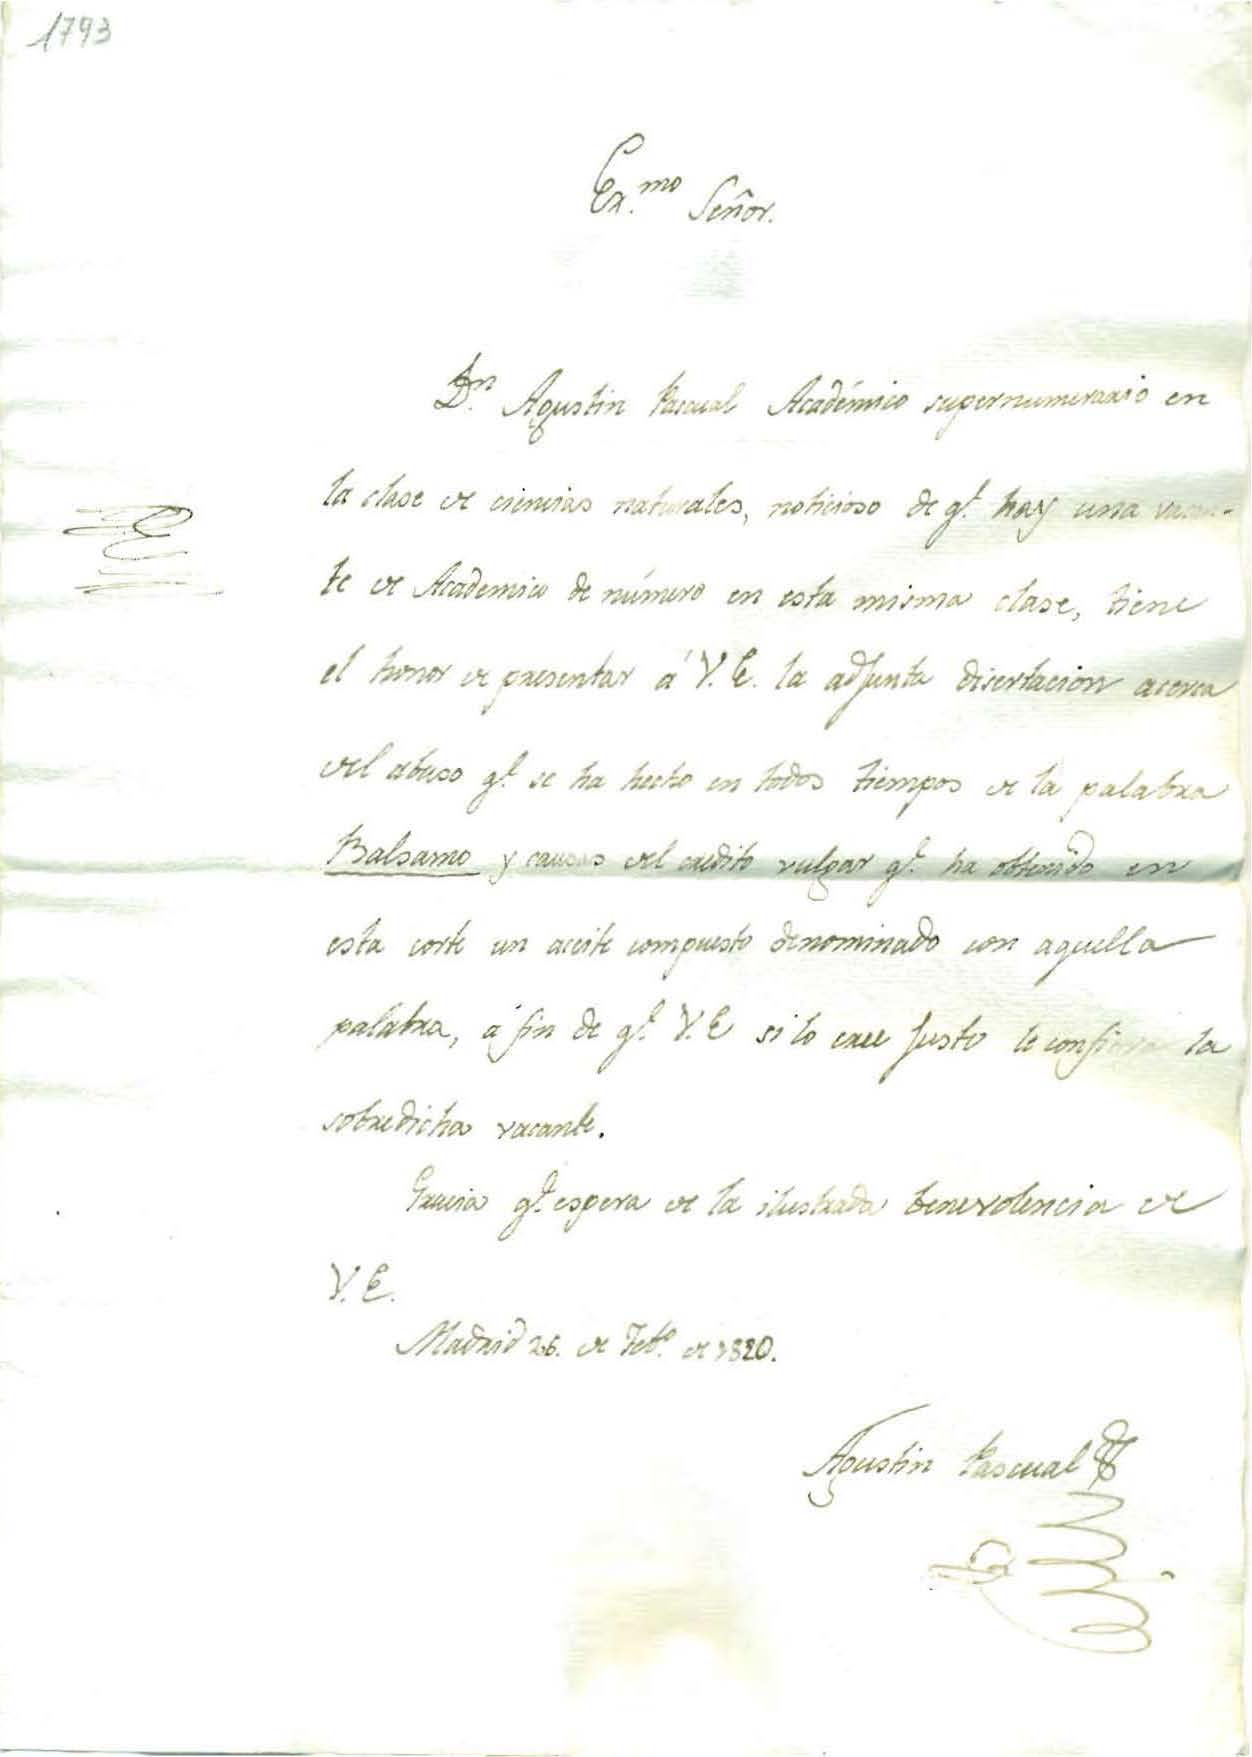 1793
Ex.mo Señor.
Dn. Agustin Pascual Académico supernumerario en
la clase de ciencias naturales, noticioso de q.e hay una vacan-
te de Academico de número en esta misma clase, tiene
el honor de presentar á V.E. la adjunta disertacion acerca
del abuso q.e se ha hecho en todos tiempos de la palabra
Balsamo y causas del credito vulgar q.e ha obtenido en
esta corte un aceite compuesto denominado con aquella
palabra, á fin de q.e V.E si lo cree justo le confiera la
sobredicha vacante.
Gracia q.e espera de la ilustrada benevolencia de
V.E.
Madrid 26. de Feb.o de 1820.
Agustin Pascual